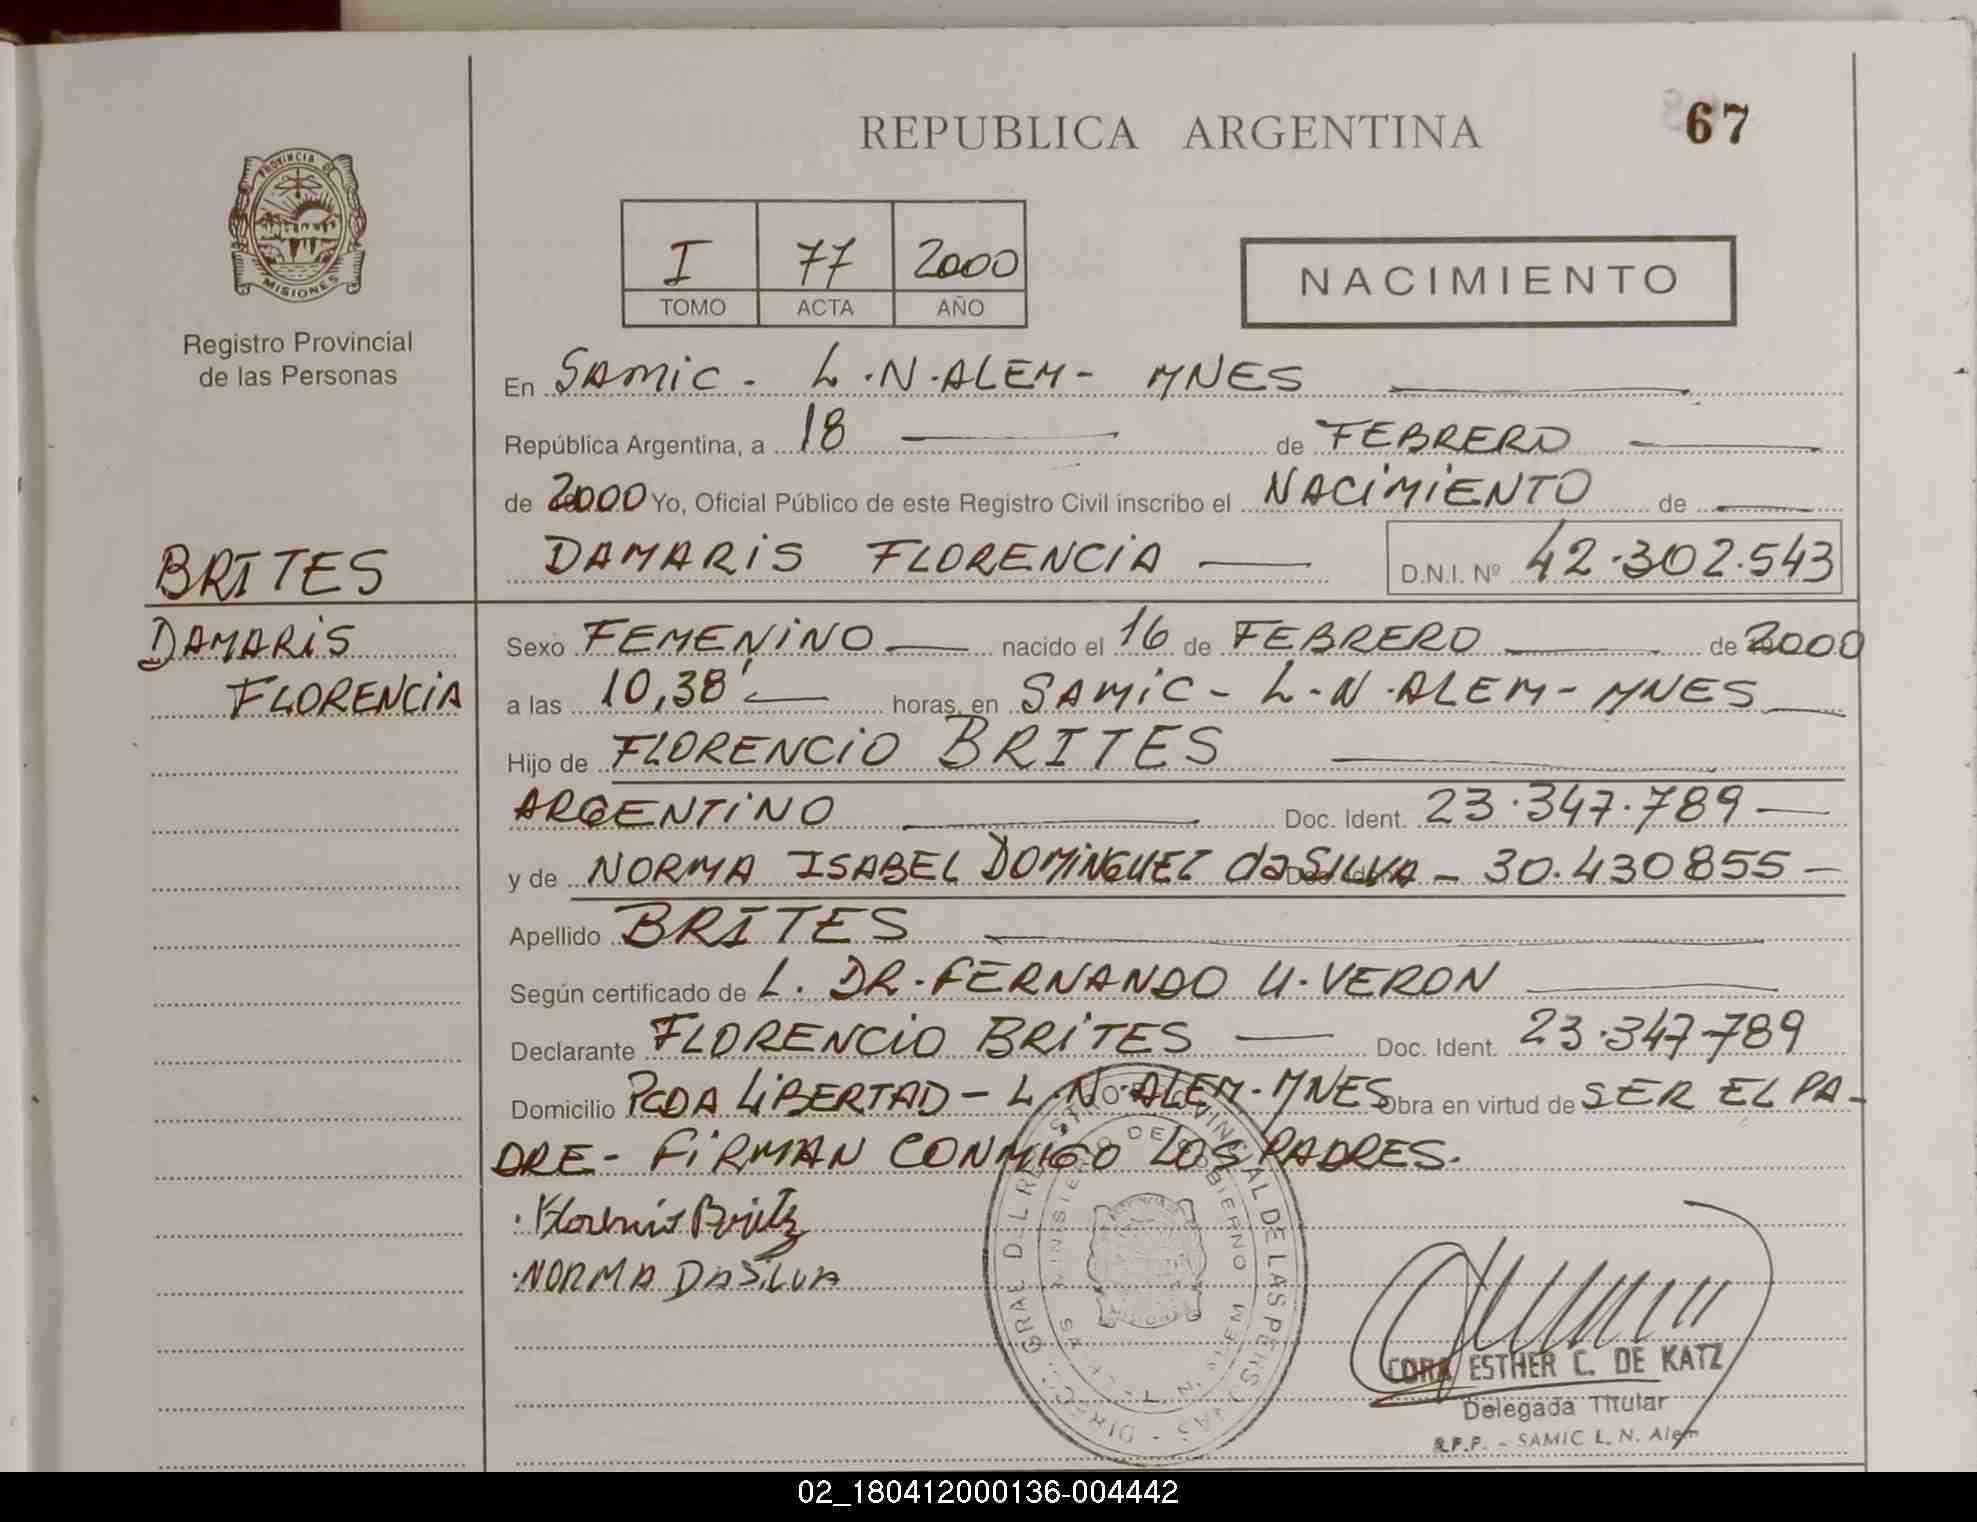 REPUBLICA ARGENTINA
67
PROVINCIA DE
MISIONES
Registro Provincial
de las Personas
I 77 2000
TOMO ACTA AÑO
NACIMIENTO
En SAMIC - L.N.ALEM - MNES
República Argentina, a 18 de FEBRERO
de 2000 Yo, Oficial Público de este Registro Civil inscribo el NACIMIENTO de
DAMARIS FLORENCIA D.N.I. Nº 42.302.543
BRITES
DAMARIS
FLORENCIA
Sexo FEMENINO nacido el 16 de FEBRERO de 2000
a las 10,38' horas, en SAMIC - L-N.ALEM - MNES
Hijo de FLORENCIO BRITES
ARGENTINO Doc. Ident. 23.347.789
y de NORMA ISABEL DOMINGUEZ da SILVA - 30.430855
Apellido BRITES
Según certificado de L. DR. FERNANDO U. VERON
Declarante FLORENCIO BRITES Doc. Ident. 23.347.789
Domicilio PCDA LIBERTAD - L.N.ALEM - MNES Obra en virtud de SER EL PA-
DRE - FIRMAN CONMIGO LOS PADRES.
NORMA DASILVA
CORA ESTHER C. DE KATZ
Delegada Titular
R.P.P. - SAMIC L. N. Alem
02_180412000136-004442